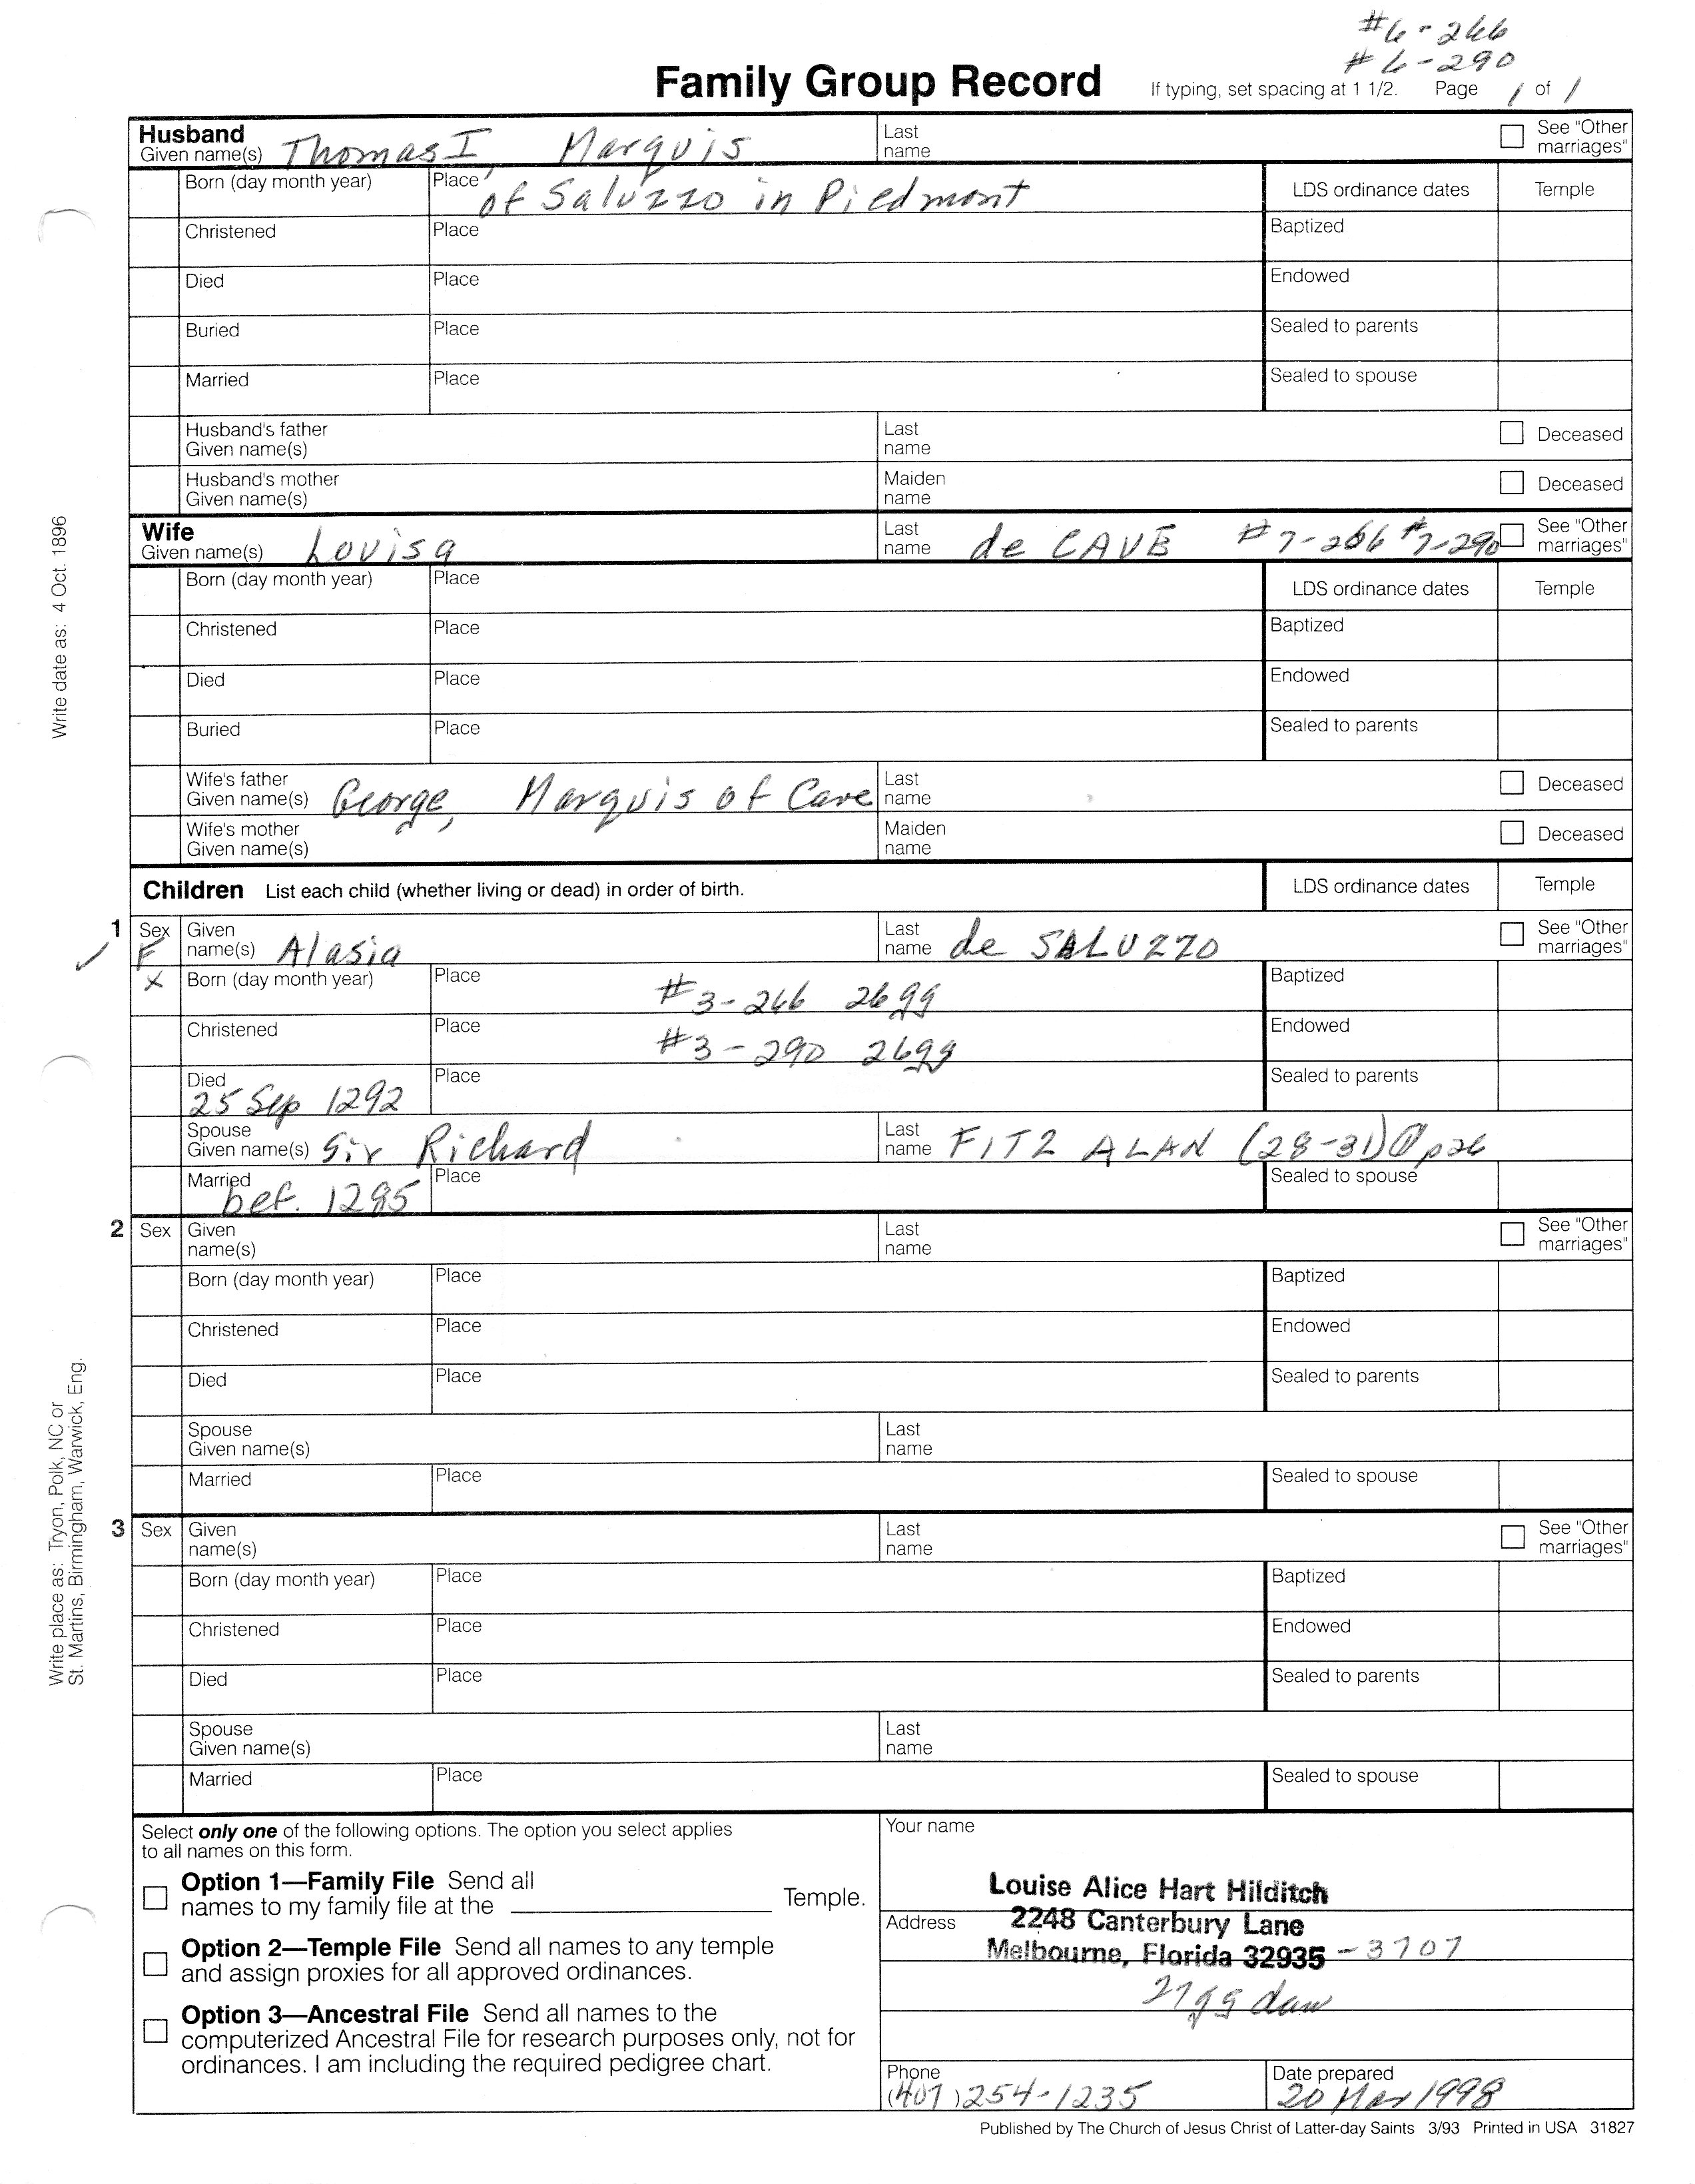 #6-266
#6-290
Family Group Record If typing, set spacing at 1 1/2. Page 1 of 1
Husband
Given name(s) Thomas I, Marquis Last name See "Other marriages"
Born (day month year) Place of Saluzzo in Piedmont LDS ordinance dates Temple
Christened Place Baptized
Died Place Endowed
Buried Place Sealed to parents
Married Place Sealed to spouse
Husband's father
Given name(s) Last name Deceased
Husband's mother
Given name(s) Maiden name Deceased
Wife
Given name(s) Louisa Last name de CAVE #7-266 #7-290 See "Other marriages"
Born (day month year) Place LDS ordinance dates Temple
Christened Place Baptized
Died Place Endowed
Buried Place Sealed to parents
Wife's father
Given name(s) George, Marquis of Cave Last name Deceased
Wife's mother
Given name(s) Maiden name Deceased
Children List each child (whether living or dead) in order of birth. LDS ordinance dates Temple
1 Sex F Given name(s) Alasia Last name de SALUZZO See "Other marriages"
X Born (day month year) Place #3-266 26gg Baptized
Christened Place #3-290 26gg Endowed
Died 25 Sep 1292 Place Sealed to parents
Spouse
Given name(s) Sir Richard Last name FITZ ALAN (28-31) p26
Married bef. 1285 Place Sealed to spouse
2 Sex Given name(s) Last name See "Other marriages"
Born (day month year) Place Baptized
Christened Place Endowed
Died Place Sealed to parents
Spouse
Given name(s) Last name
Married Place Sealed to spouse
3 Sex Given name(s) Last name See "Other marriages"
Born (day month year) Place Baptized
Christened Place Endowed
Died Place Sealed to parents
Spouse
Given name(s) Last name
Married Place Sealed to spouse
Select only one of the following options. The option you select applies
to all names on this form.
Option 1—Family File Send all
names to my family file at the Temple.
Option 2—Temple File Send all names to any temple
and assign proxies for all approved ordinances.
Option 3—Ancestral File Send all names to the
computerized Ancestral File for research purposes only, not for
ordinances. I am including the required pedigree chart.
Your name
Louise Alice Hart Hilditch
Address 2248 Canterbury Lane
Melbourne, Florida 32935 -3707
27gg dau
Phone (407) 254-1235
Date prepared 20 Mar 1998
Published by The Church of Jesus Christ of Latter-day Saints 3/93 Printed in USA 31827
Write date as: 4 Oct. 1896
Write place as: Tryon, Polk, NC or
St. Martins, Birmingham, Warwick, Eng.